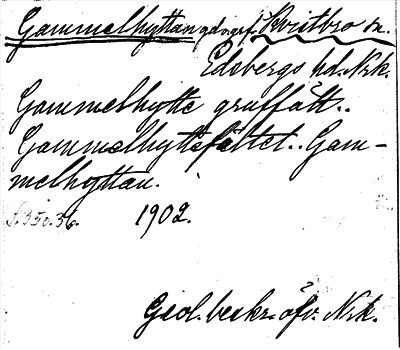 Gammelhyttan gd o. grf. Kvistbro sn.
Edsbergs hd. Nrk.
Gammelhytte gruffält..
Gammelhyttefältet.. Gam-
melhyttan.
S. 35 o. 36. 1902.
Geol. beskr. öfv. Nrk.